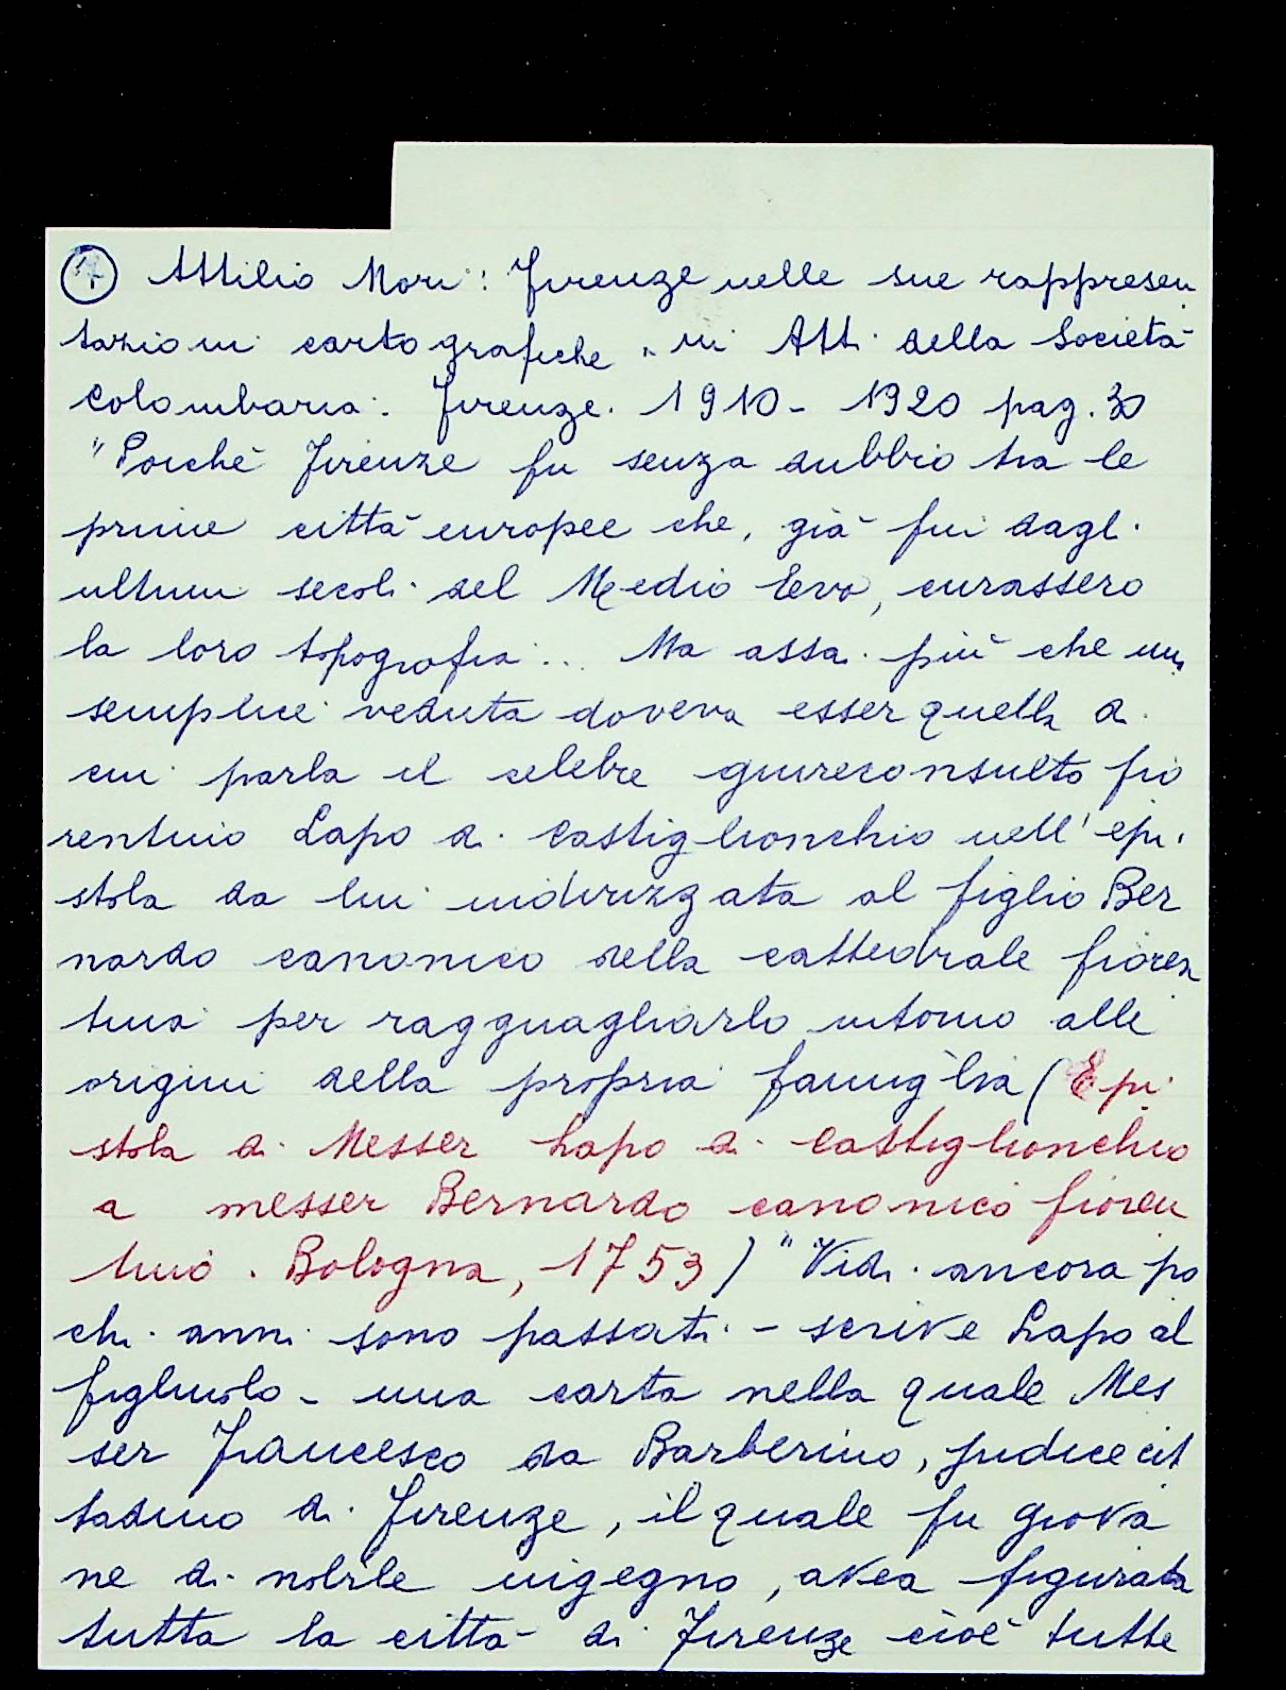 Attilio Mori: Firenze nelle sue rappresen
tazioni cartografiche " in Atti della Società
Colombaria. Firenze. 1910 - 1920 pag. 30
"Poiché Firenze fu senza dubbio tra le
prime città europee che, già fin dagli
ultimi secoli del Medio Evo, curassero
la loro topografia... Ma assai più che una
semplice veduta doveva esser quella di
cui parla il celebre giureconsulto fio
rentino Lapo di Castiglionchio nell'epi
stola da lui indirizzata al figlio Ber
nardo canonico della cattedrale fioren
tina per ragguagliarlo intorno alle
origini della propria famiglia (Epi
stola di Messer Lapo di Castiglionchio
a messer Bernardo canonico fioren
tino. Bologna, 1753) "Vidi ancora po
chi anni sono passati - scrive Lapo al
figliuolo - una carta nella quale Mes
ser Francesco da Barberino, judice cit
tadino di Firenze, il quale fu giova
ne di nobile ingegno, avea figurata
tutta la città di Firenze cioè tutte